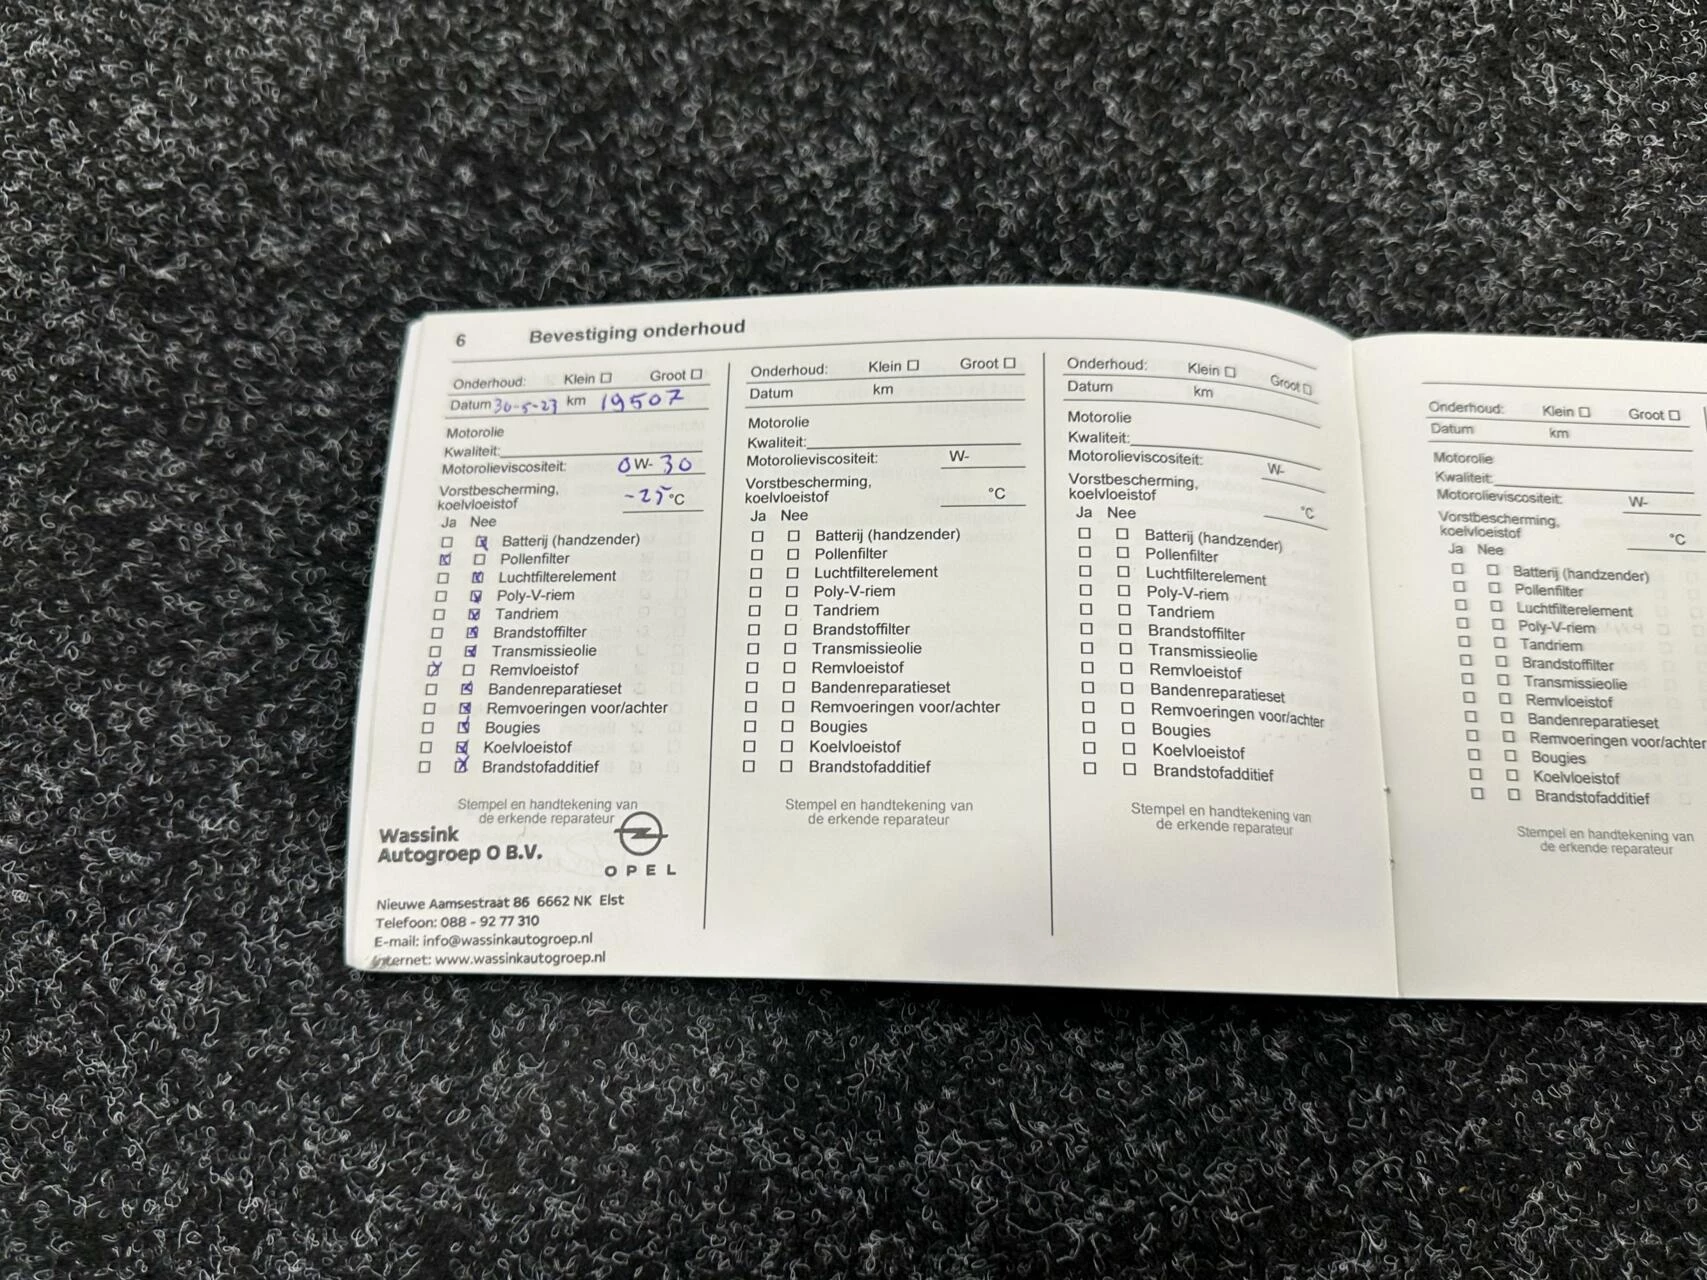 6 Bevestiging onderhoud
Onderhoud: Klein ☐ Groot ☐
Datum 30-5-23 km 19507
Motorolie
Kwaliteit:
Motorolieviscositeit: 0 W- 30
Vorstbescherming,
koelvloeistof -25 °C
Ja Nee
Batterij (handzender)
Pollenfilter
Luchtfilterelement
Poly-V-riem
Tandriem
Brandstoffilter
Transmissieolie
Remvloeistof
Bandenreparatieset
Remvoeringen voor/achter
Bougies
Koelvloeistof
Brandstofadditief
Stempel en handtekening van
de erkende reparateur
Wassink
Autogroep O B.V.
OPEL
Nieuwe Aamsestraat 86 6662 NK Elst
Telefoon: 088 - 92 77 310
E-mail: info@wassinkautogroep.nl
Internet: www.wassinkautogroep.nl
Onderhoud: Klein ☐ Groot ☐
Datum km
Motorolie
Kwaliteit:
Motorolieviscositeit: W-
Vorstbescherming,
koelvloeistof °C
Ja Nee
Batterij (handzender)
Pollenfilter
Luchtfilterelement
Poly-V-riem
Tandriem
Brandstoffilter
Transmissieolie
Remvloeistof
Bandenreparatieset
Remvoeringen voor/achter
Bougies
Koelvloeistof
Brandstofadditief
Stempel en handtekening van
de erkende reparateur
Onderhoud: Klein ☐ Groot ☐
Datum km
Motorolie
Kwaliteit:
Motorolieviscositeit: W-
Vorstbescherming,
koelvloeistof °C
Ja Nee
Batterij (handzender)
Pollenfilter
Luchtfilterelement
Poly-V-riem
Tandriem
Brandstoffilter
Transmissieolie
Remvloeistof
Bandenreparatieset
Remvoeringen voor/achter
Bougies
Koelvloeistof
Brandstofadditief
Stempel en handtekening van
de erkende reparateur
Onderhoud: Klein ☐ Groot ☐
Datum km
Motorolie
Kwaliteit:
Motorolieviscositeit: W-
Vorstbescherming,
koelvloeistof °C
Ja Nee
Batterij (handzender)
Pollenfilter
Luchtfilterelement
Poly-V-riem
Tandriem
Brandstoffilter
Transmissieolie
Remvloeistof
Bandenreparatieset
Remvoeringen voor/achter
Bougies
Koelvloeistof
Brandstofadditief
Stempel en handtekening van
de erkende reparateur